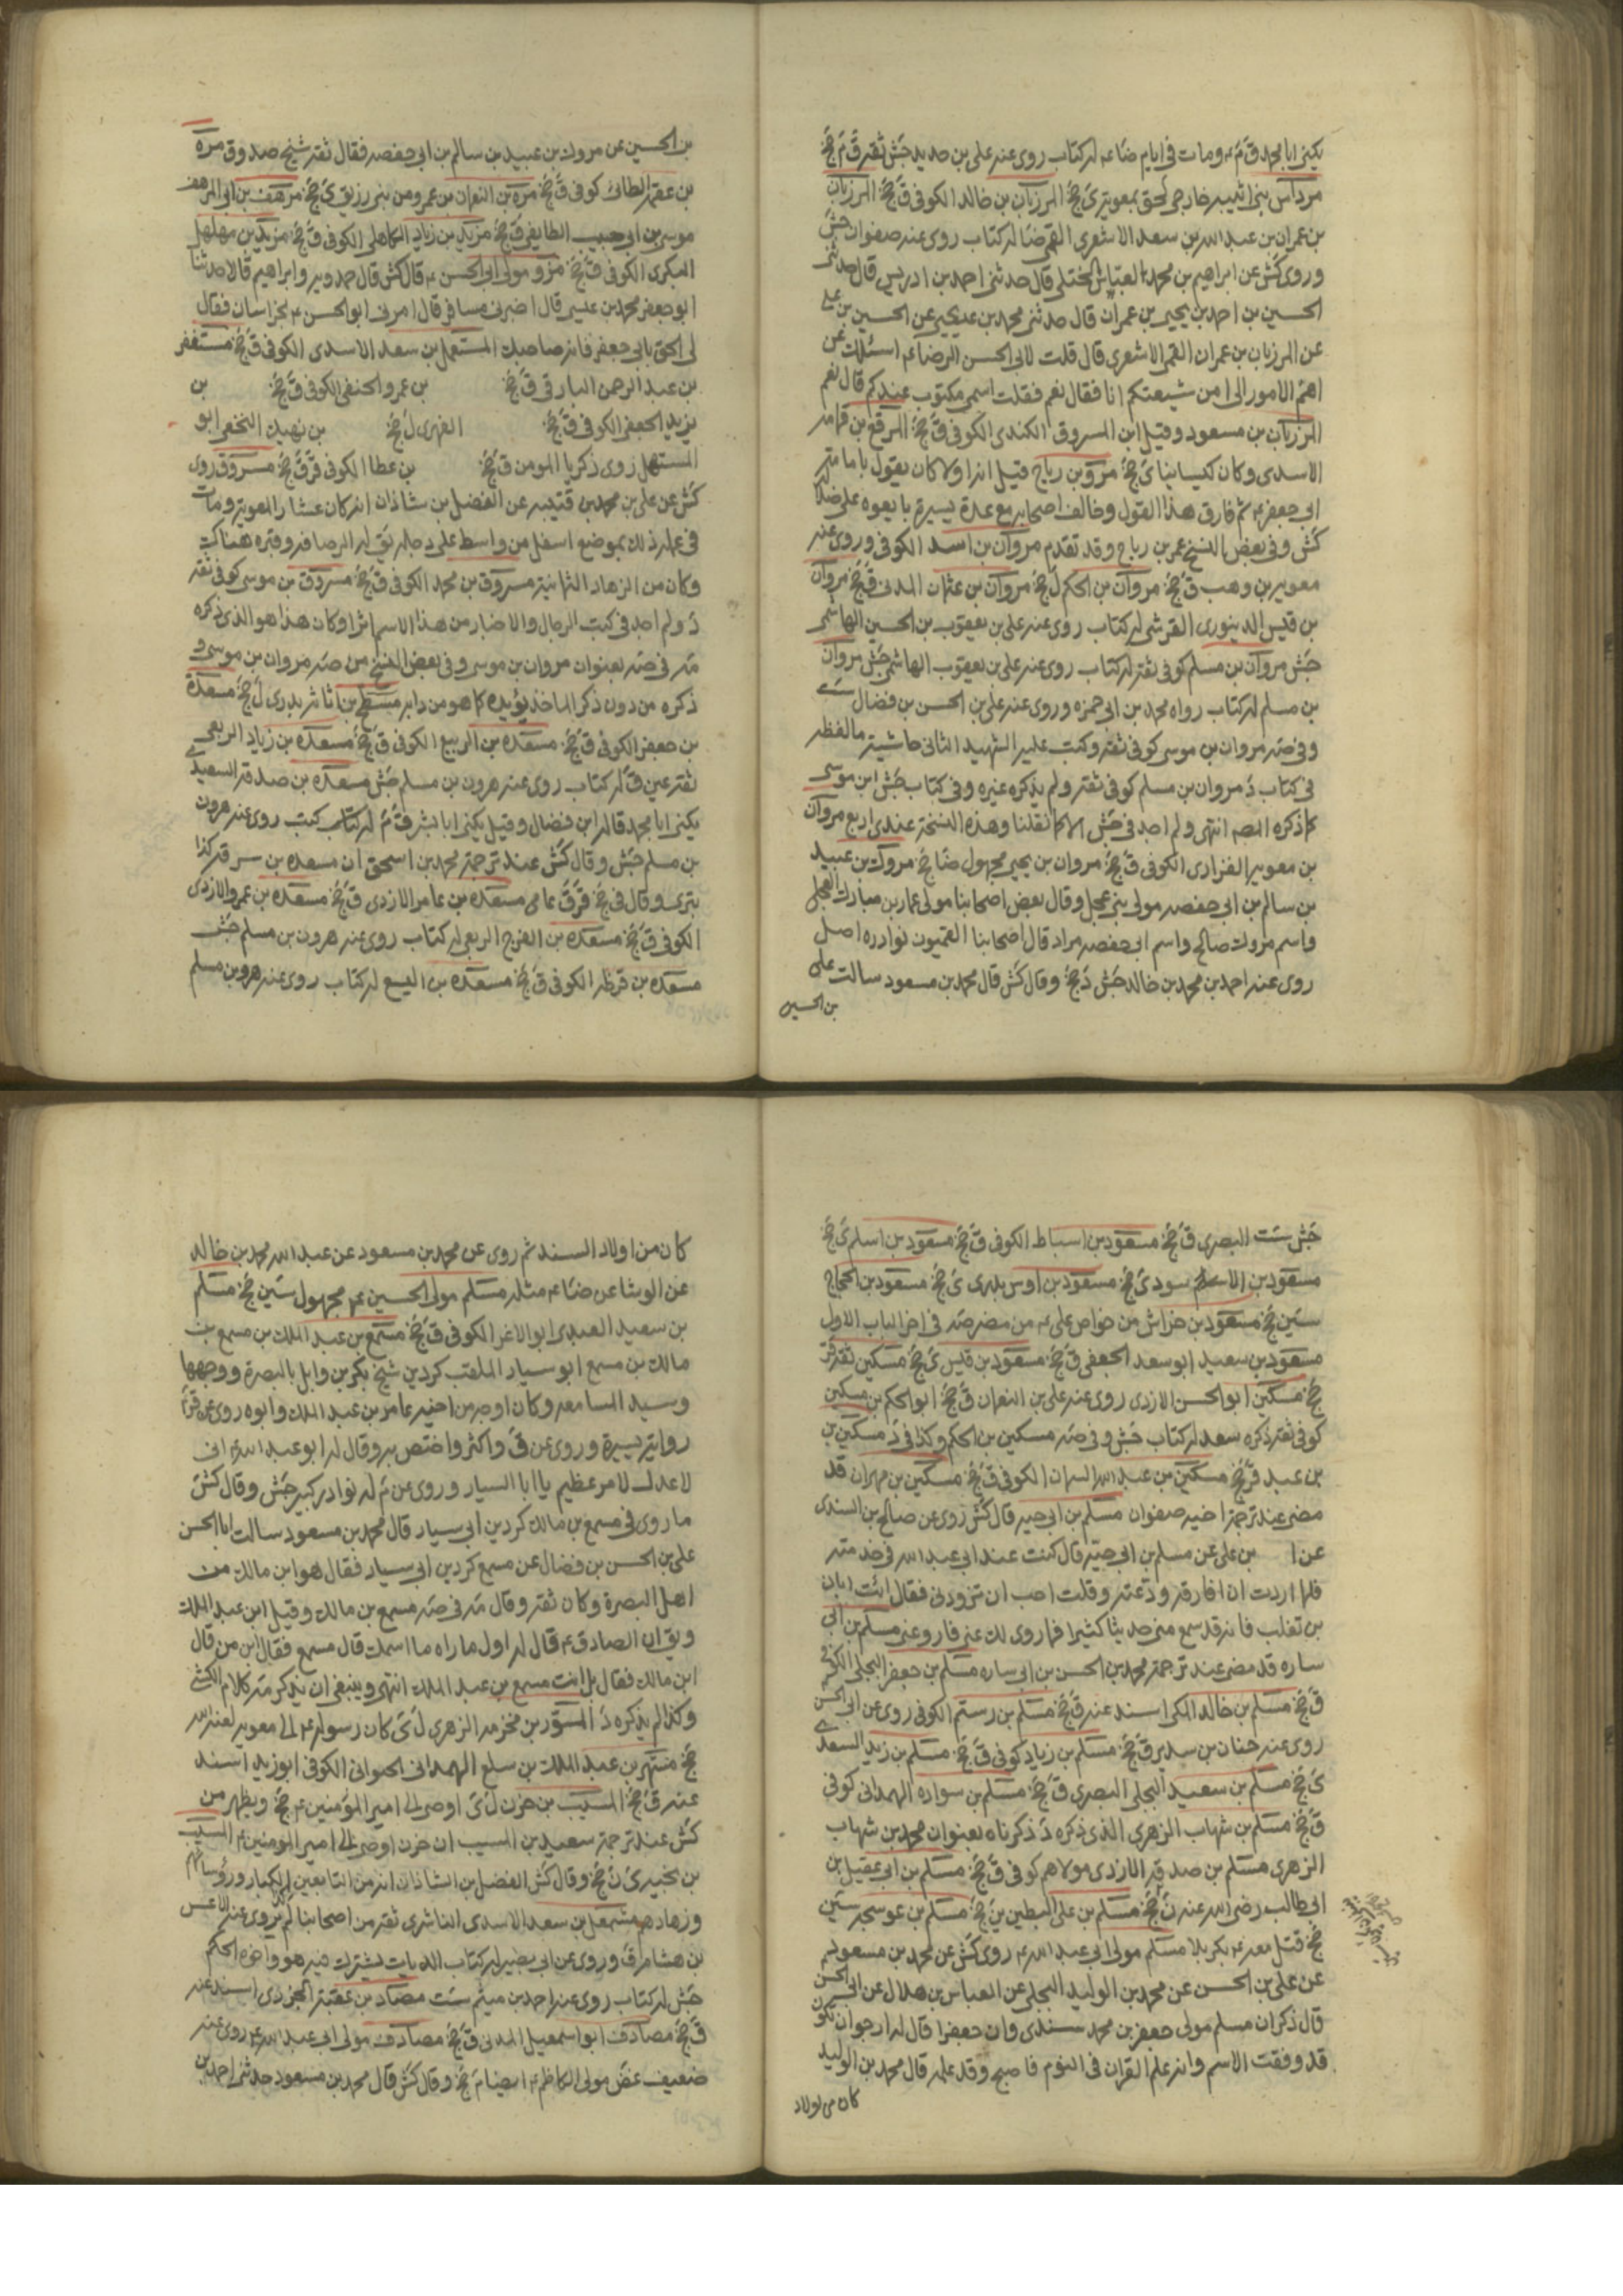 يكنى ابا محمد ق م ومات في ايام ضا ع له كتاب روى عنه علي بن حديد جش ثقة ق م جخ
مرداس بن اثيبه خارجي لحق بمعوية ى جخ المرزبان بن خالد الكوفى ق جخ المرزبان
بن عمران بن عبد الله بن سعد الاشعري القمى ضا له كتاب روى عنه صفوان جش
وروى كش عن ابراهيم بن محمد العباس الختلى قال حدثنى احمد بن ادريس قال حدثنى
الحسين بن احمد بن يحيى بن عمران قال حدثنى محمد بن عيسى عن الحسين بن على
عن المرزبان بن عمران القمى الاشعرى قال قلت لابى الحسن الرضا ع اسئلك عن
اهم الامور الى امن شيعتكم انا فقال نعم فقلت اسمى مكتوب عندكم قال نعم
المرزبان بن مسعود وقيل ابن المسروق الكندى الكوفى ق جخ المرقع بن قمامه
الاسدى وكان كيسانيا ى جخ مروبن رباح قيل انه اولا كان يقول بامامة
ابى جعفر ع ثم فارق هذا القول وخالف اصحابه مع عدة يسيرة بايعوه على ضلاله
كش وفى بعض النسخ عمر بن رباح وقد تقدم مروان بن اسد الكوفى وروى عنه
معوية بن وهب ق جخ مروان بن الحكم ل جخ مروان بن عثمان المدنى ق جخ مروان
بن قيس الدينورى القرشى له كتاب روى عنه على بن يعقوب بن الحسين الهاشمى
جش مروان بن مسلم كوفى ثقة له كتاب روى عنه على بن يعقوب الهاشمى جش مروان
بن مسلم له كتاب رواه محمد بن ابى حمزه وروى عنه على بن الحسن بن فضال ست
وفى صه مروان بن موسى كوفى ثقة وكتب عليه الشهيد الثانى حاشية مالفظه
فى كتاب د مروان بن مسلم كوفى ثقة ولم يذكره غيره وفى كتاب جش ابن موسى
كما ذكره المصه انتهى ولم اجد فى جش الا كما نقلنا وهذه النسخة عندى اربع مروان
بن معوية الفزارى الكوفى ق جخ مروان بن يحيى مجهول ضا جخ مروك بن عبيد
بن سالم بن ابى حفصه مولى بنى عجل وقال بعض اصحابنا مولى عمار بن مبارك العجلى
واسم مروك صالح واسم ابى حفصه مراد قال اصحابنا القميون نوادره اصل
روى عنه احمد بن محمد بن خالد جش د جخ وقال كش قال محمد بن مسعود سالت على
بن الحسين
بن الحسين عن مروك بن عبيد بن سالم بن ابى حفصه فقال ثقة شيخ صدوق مرة
موسى بن ابى حبيب الطايفى ق جخ مزيد بن زياد الكاهلى الكوفى ق جخ مزيد بن مهلهل
البكرى الكوفى ق جخ مولى ابى الحسن ع قال كش قال حمدويه وابراهيم قالا حدثنا
ابو جعفر محمد بن عيسى قال اخبرنى مسافر قال امرنى ابو الحسن ع بخراسان فقال
لى الحق بابى جعفر فانه صاحبك المستهل بن سعد الاسدى الكوفى ق جخ مستغفر
بن عبد الرحمن البارقى ق جخ بن عمرو الحنفى الكوفى ق جخ بن
يزيد الجعفى الكوفى ق جخ الفهرى ل جخ بن نهيك النخعى ابو
المستهل روى ذكريا المومن ق جخ بن عطا الكوفى قر ق جخ مسروق روى
كش عن على بن محمد بن قتيبه عن الفضل بن شاذان انه كان عشارا لمعوية ومات
فى عمله ذلك بموضع اسفل من واسط على دجلة يق له الرصافه وقبره هناك
وكان من الزهاد الثمانية مسروق بن محمد الكوفى ق جخ مسروق بن موسى كوفى ثقة
د ولم اجد فى كتب الرجال والاخبار من هذا الاسم اثرا وكان هذا هو الذى ذكره
مه فى صه بعنوان مروان بن موسى وفى بعض النسخ من صه مروان بن موسى و
ذكره من دون ذكر الماخذ يؤيده كما هو من دابه مسطح بن اثاثه بدرى ل جخ مسعدة
بن جعفر الكوفى ق جخ مسعده بن الربيع الكوفى ق جخ مسعده بن زياد الربعى
ثقة عين ق له كتاب روى عنه هرون بن مسلم جش مسعده بن صدقه السعيد
يكنى ابا محمد قاله ابن فضال وقيل يكنى ابا بشر ق م له كتب روى عنه هرون
بن مسلم جش وقال كش عند ترجمة محمد بن اسحق ان مسعده بن سرقه كذا
بترى وقال فى جخ قر ق عامى مسعده بن عامر الازدى ق جخ مسعده بن عمرو الازدى
الكوفى ق جخ مسعده بن الفرج الربعى له كتاب روى عنه هرون بن مسلم جش
مسعده بن قرظه الكوفى ق جخ مسعده بن اليسع له كتاب روى عنه هرو بن مسلم
جش ست البصرى ق جخ مسعود بن اسباط الكوفى ق جخ مسعود بن اسلم ى جخ
مسعود بن سودى جخ مسعود بن اوس بدرى ى جخ مسعود بن الحجاج
سين جخ مسعود بن خراش من خواص على ع من مضر صه فى اخر الباب الاول
مسعود بن سعيد ابو سعد الجعفى ق جخ مسعود بن قيس ى جخ مسكين ثقة قر
جخ مسكين ابو الحسن الازدى روى عنه على بن النعمان ق جخ ابو الحكم بن مسكين
كوفى ثقة ذكره سعد له كتاب جش وفى صه مسكين بن الحكم وكذا فى د مسكين بن
بن عبد قر جخ مسكين بن عبد الله السمان الكوفى ق جخ مسكين بن مهران قد
مضى عند ترجمة اخيه صفوان مسلم بن ابى حيه قال كش روى عن صالح بن السندى
عن ا بن على عن مسلم بن ابى حية قال كنت عند ابى عبد الله فى خدمته
فلما اردت ان افارقه ودعته وقلت احب ان تزودنى فقال ائت ابان
بن تغلب فانه قد سمع منى حديثا كثيرا فما روى لك عنى فاروعنى مسلم بن ابى
ساره قد مضى عند ترجمة محمد بن الحسن بن ابى ساره مسلم بن جعفر البجلى الكوفى
ق جخ مسلم بن خالد المكى اسند عنه ق جخ مسلم بن رستم الكوفى روى عن ابى الحسن
روى عنه حنان بن سدير ق جخ مسلم بن زياد كوفى ق جخ مسلم بن زيد السعدى
ى جخ مسلم بن سعيد البجلى البصرى ق جخ مسلم بن سواده الهمدانى كوفى
ق جخ مسلم بن شهاب الزهرى الذى ذكره د ذكرناه بعنوان محمد بن شهاب
الزهرى مسلم بن صدقه الازدى مولاهم كوفى ق جخ مسلم بن ابى عقيل بن
ابى طالب رضى الله عنه ن جخ مسلم بن على البطين ين جخ مسلم بن عوسجه سين
جخ قتل معه ع بكربلا مسلم مولى ابى عبد الله ع روى كش عن محمد بن مسعود
عن على بن الحسن عن محمد بن الوليد البجلى عن العباس بن هلال عن ابى الحسن
قال ذكر ان مسلم مولى جعفر بن محمد سندى وان جعفرا قال له ارجوان تكون
قد وفقت الاسم وانه علم القران فى النوم فاصبح وقد علمه قال محمد بن الوليد
كان من اولاد
كان من اولاد السند ثم روى عن محمد بن مسعود عن عبد الله محمد بن خالد
عن الوشا عن ضا ع مثله مسلم مولى الحسين ع مجهول سين جخ مسلم
بن سعيد العبدى ابو الاغر الكوفى ق جخ مسمع بن عبد الملك بن مسمع بن
مالك بن مسمع ابو سيار الملقب كردين شيخ بكر بن وايل بالبصرة ووجهها
وسيد المسامعه وكان اوجه من اخيه عامر بن عبد الملك وابوه روى عن قر
رواية يسيرة وروى عن ق واكثر واختص به وقال له ابو عبد الله ع انى
لاعدك لامر عظيم يا ابا السيار وروى عن م له نوادر كبير جش وقال كش
ما روى فى مسمع بن مالك كردين ابى سيار قال محمد بن مسعود سالت ابا الحسن
على بن الحسن بن فضال عن مسمع كردين ابى سيار فقال هو ابن مالك من
اهل البصرة وكان ثقة وقال مه فى صه مسمع بن مالك وقيل ابن عبد الملك
ويق ان الصادق ع قال له اول ما راه ما اسمك قال مسمع فقال ابن من قال
ابن مالك فقال بل انت مسمع بن عبد الملك انتهى وينبغى ان يذكر مه كلام الكشى
وكذا لم يذكره د المسور بن مخرمه الزهرى ل ى كان رسوله ع الى معوية لعنه الله
جخ مسهر بن عبد الملك بن سلع الهمدانى الكوفى ابو زيد اسند
عنه ق جخ المسيب بن حزن ل ى اوصى الى امير المؤمنين ع جخ ويظهر من
كش عند ترجمة سعيد بن المسيب ان حزن اوصى الى امير المومنين ع المسيب
وقال كش الفضل بن الشاذان انه من التابعين الكبار ورؤسائهم
وزهادهم مشمعل بن سعد الاسدى الناشرى ثقة من اصحابنا لم يروى عنه
وروى عن ابى بصير له كتاب الديات يشترك فيه هو واخوه الحكم
جش له كتاب روى عنه احمد بن ميثم ست مصاد بن عقبة الجزرى اسند عنه
ق جخ مصادف ابو اسمعيل المدنى ق جخ مصادف مولى ابى عبد الله ع روى عنه
ضعيف غض مولى الكاظم ع ايضا م جخ وقال كش قال محمد بن مسعود حدثنى احمد بن